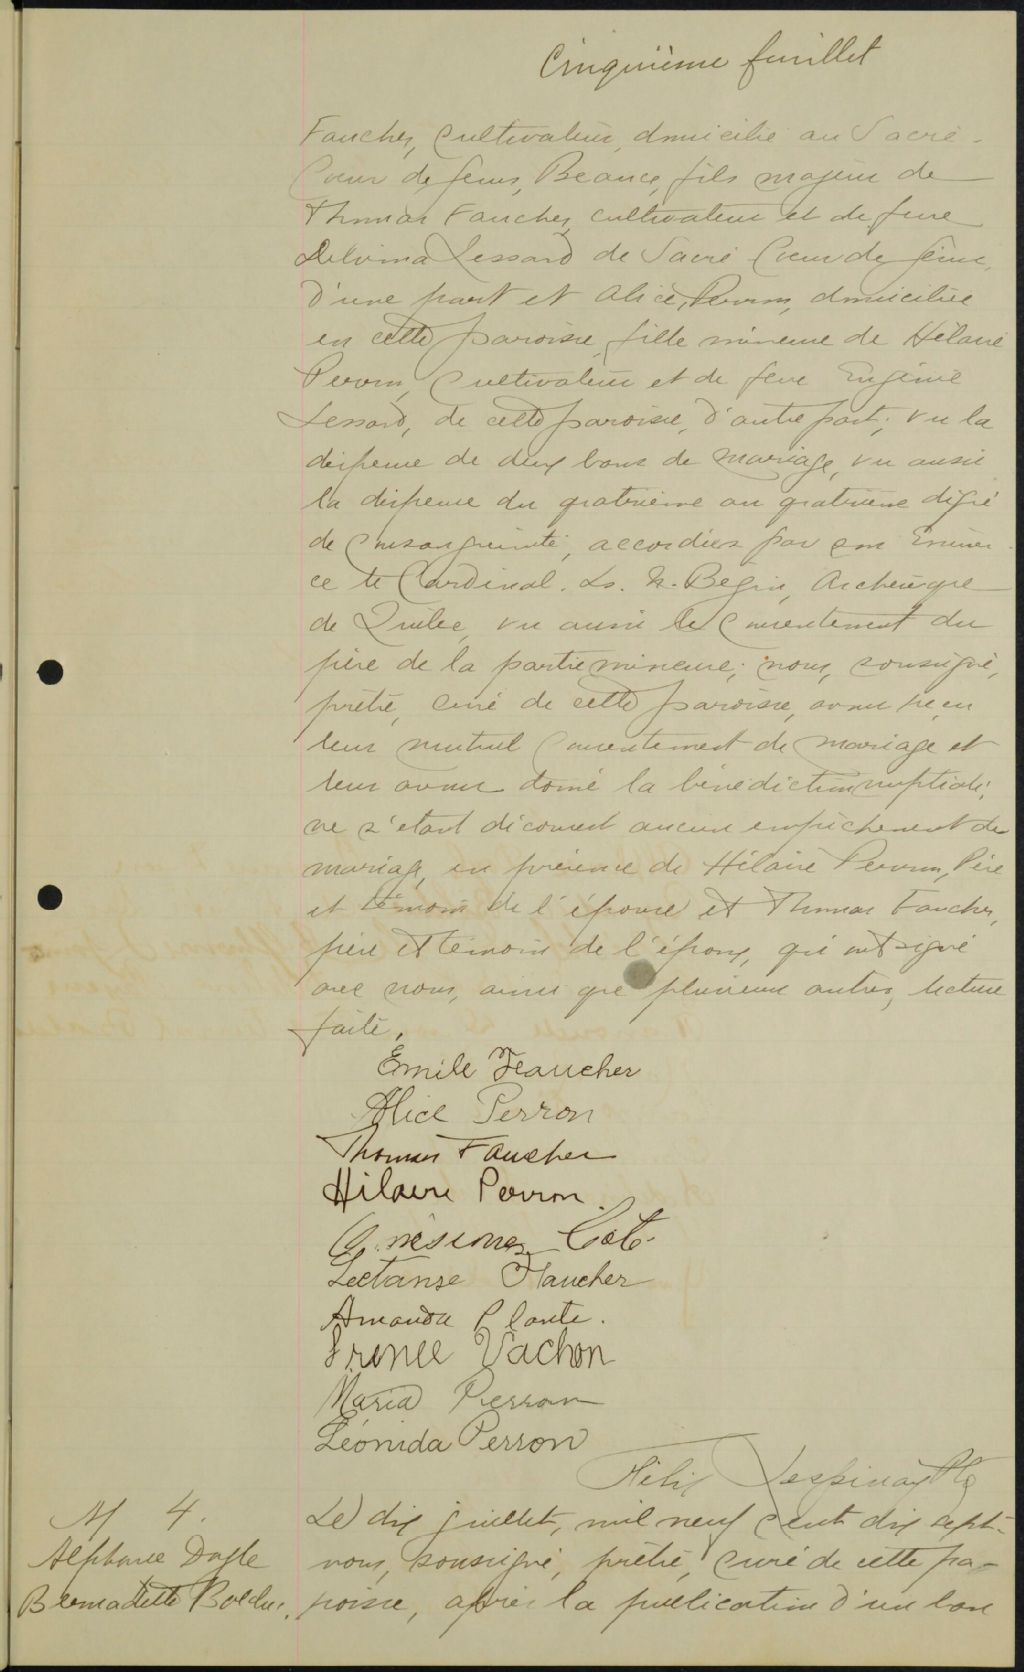 Cinquième feuillet
Faucher, cultivateur, domicilié au Sacré-
Coeur de Jésus, Beauce, fils majeur de
Thomas Faucher, cultivateur et de feue
Delvina Lessard de Sacré Coeur de Jésus,
d'une part et Alice, Perron, domiciliée
en cette paroisse, fille mineure de Hilaire
Perron, Cultivateur et de feue Eugénie
Lessard, de cette paroisse, d'autre part; vu la
dispense de deux bans de mariage, vu aussi
la dispense du quatrième au quatrième degré
de consanguinité, accordées par son Eminen-
ce le Cardinal. Ls. N. Bégin, Archevêque
de Québec, vu aussi le consentement du
père de la partie mineure; nous, soussigné,
prêtre, curé de cette paroisse, avons reçu
leur mutuel consentement de mariage et
leur avons donné la bénédiction nuptiale,
ne s'étant découvert aucun empêchement de
mariage, en présence de Hilaire Perron, Père
et témoin de l'épouse et Thomas Faucher,
père et témoin de l'époux, qui ont signé
avec nous, ainsi que plusieurs autres, lecture
faite,
Emile Feaucher
Alice Perron
Thomas Faucher
Hilaire Perron
Onésime Coté
Lectanse Faucher
Amanda Plante.
Irenee Vachon
Maria Perron
Léonida Perron
Félix Lespinay Ptre
M 4.
Alphonse Doyle
Bernadette Bolduc.
Le dix juillet, mil neuf cent dix sept-
nous, soussigné, prêtre, curé de cette pa-
roisse, après la publication d'un ban